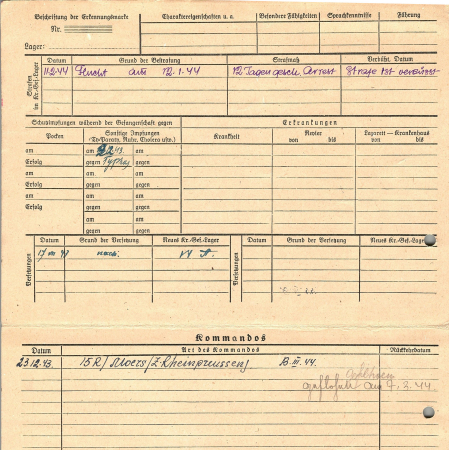 Beschriftung der Erkennungsmarke
Nr.
Lager:
Charaktereigenschaften u. a.
Besondere Fähigkeiten
Sprachkenntnisse
Führung
Strafen im Kr.-Gef.-Lager
Datum
Grund der Bestrafung
Strafmaß
Verbüßt, Datum
11.2.44 Flucht am 12.1.44 12 Tagen gesch. Arrest Strafe ist verbüsst
Schutzimpfungen während der Gefangenschaft gegen
Erkrankungen
Pocken
Sonstige Impfungen
(Ty-Paraty. Ruhr, Cholera usw.)
Krankheit
Revier
von bis
Lazarett – Krankenhaus
von bis
am am 43. am
Erfolg gegen Typhus gegen
am am am
Erfolg gegen gegen
am am
gegen gegen
Versetzungen
Datum
Grund der Versetzung
Neues Kr.-Gef.-Lager
Versetzungen
Datum
Grund der Versetzung
Neues Kr.-Gef.-Lager
VI A.
Kommandos
Datum
Art des Kommandos
Rückkehrdatum
23.12.43. 15 R/ Moers / Z. Rheinpreussen/ B. III. 44.
geflohen am 7.3.44